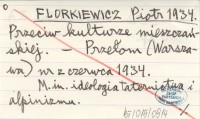 FLORKIEWICZ Piotr 1934.
Przeciw kulturze mieszczań-
skiej. — Przełom (Warsza-
wa) nr z czerwca 1934.
M.in. ideologia taternictwa i
alpinizmu.